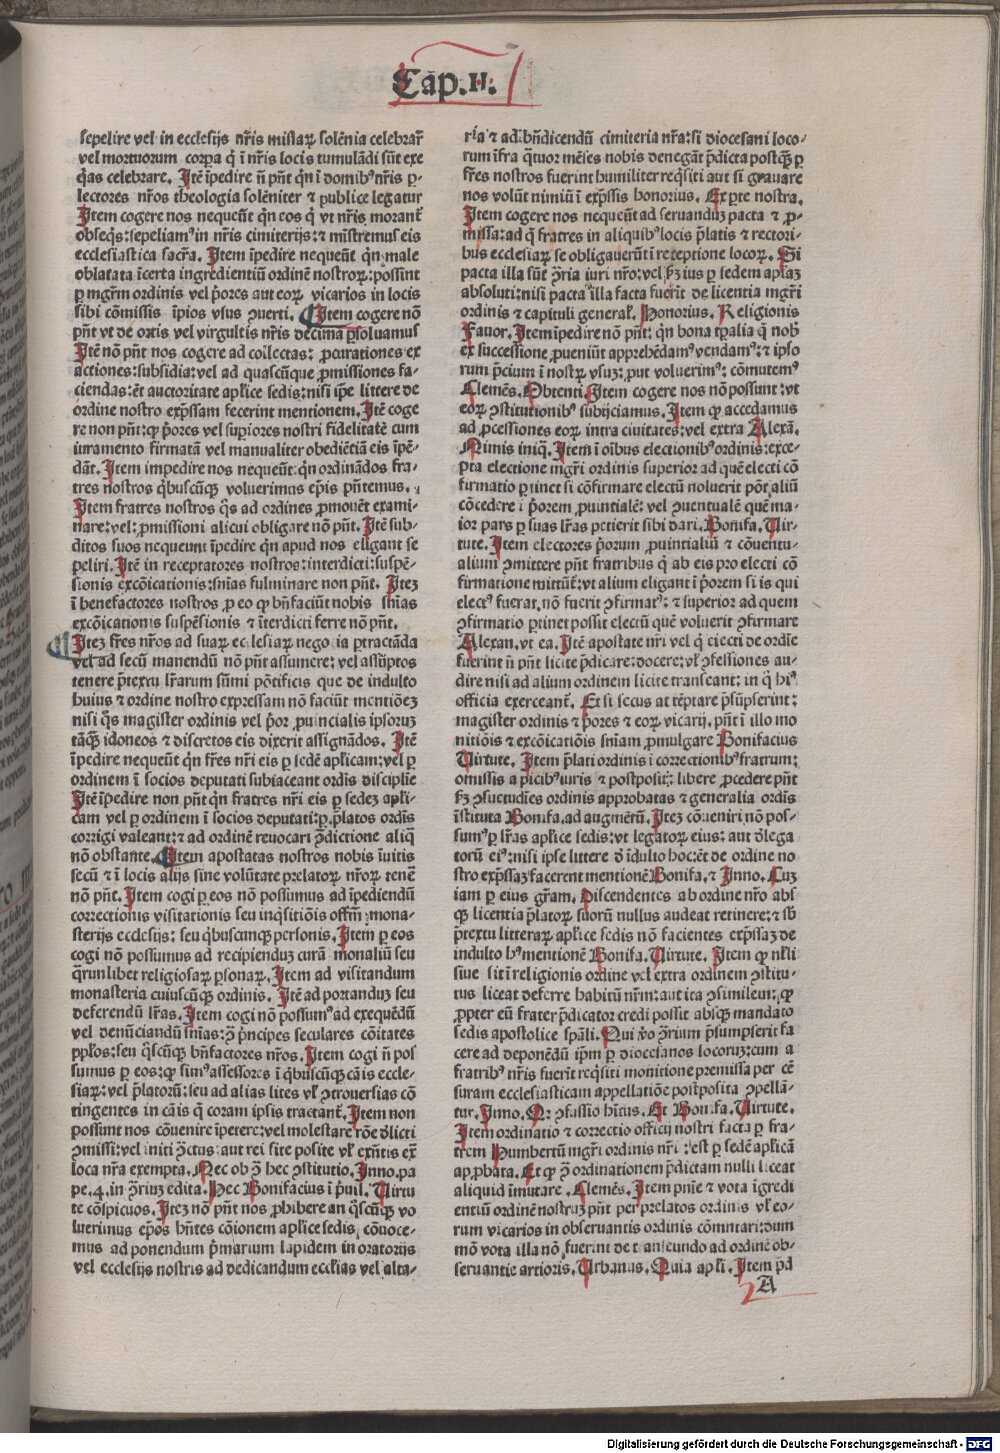 Cāp.II.
sepelire vel in ecclesijs nr̄is missaꝝ solēnia celebrar̄
vel mortuorum corpa q̇ ī nr̄is locis tumulādi sūt exe
q̄as celebrare. Itē īpedire n̄ pn̄t qn̄ ī domibꝰ nr̄is p̱‐
lectores nr̄os theologia solēniter ⁊ publice legatur
Item cogere nos nequeūt qn̄ eos q̇ vt nr̄is morant̄
obseq̇s: sepeliamꝰ in nr̄is cimiterijs: ⁊ mīstremus eis
ecclesiastica sacr̄a. Item īpedire nequeūt qn̄ male
oblatata īcerta ingredientiū ordinē nostroꝝ: possint
ꝑ mgr̄m ordinis vel p̄ores aut eoꝝ vicarios in locis
sibi cōmissis īpios vsus ꝯuerti. Item cogere nō
pn̄t vt de oxis vel virgultis nr̄is decima p̄soluamus
Itē nō pn̄t nos cogere ad collectas: ꝓcurationes ex
actiones: subsidia: vel ad quascūqꝫ ꝓmissiones fa‐
ciendas: ēt auctoritate apl̄ice sedis: nisi ip̄e littere de
ordine nostro exp̄ssam fecerint mentionem. Itē coge
re non pn̄t: qꝫ p̄ores vel suꝑiores nostri fidelitatē cum
iuramento firmatā vel manualiter obediētiā eis īpē‐
dāt. Item impedire nos nequeūt: qn̄ ordinādos fra‐
tres nostros q̇buscūqꝫ voluerimus ep̄is pn̄temus.
Item fratres nostros q̇s ad ordines ꝓmouēt exami‐
nare: vel: ꝓmissioni alicui obligare nō pn̄t. Itē sub‐
ditos suos nequeunt īpedire qn̄ apud nos eligant se
peliri. Itē in receptatores nostros: interdicti: suspē‐
sionis excōicationis: sn̄ias fulminare non pn̄t. Iteꝫ
ī benefactores nostros ꝓ eo qꝫ bn̄faciūt nobis sn̄ias
excōicationis suspēsionis ⁊ īterdicti ferre nō pn̄t.
Iteꝫ fr̄es nr̄os ad suaꝝ ecclesiaꝝ negoia ꝑtractāda
vel ad secū manendū nō pn̄t assumere: vel assūptos
tenere p̄textu lr̄arum sūmi pōtificis que de indulto
huius ⁊ ordine nostro expressam nō faciūt mentiōeꝫ
nisi q̇s magister ordinis vel p̄or ꝓuincialis ipsoruꝫ
tāq̄ꝫ idoneos ⁊ discretos eis dixerit assignādos. Itē
īpedire nequeūt qn̄ fr̄es nr̄i eis ꝑ sedē aplicam: vel ꝑ
ordinem ī socios deputati subiaceant ordis discipline
Itē īpedire non pn̄t qn̄ fratres nr̄i eis ꝑ sedeꝫ apl̄i‐
cam vel ꝑ ordinem ī socios deputati: ꝑ platos ordīs
corrigi valeant: ⁊ ad ordinē reuocari ꝯ̄dictione aliq̄
nō obstante. Item apostatas nostros nobis īuitis
secū ⁊ ī locis alijs sine volūtate prelatoꝝ nr̄oꝝ tenē
nō pn̄t. Item cogi ꝑ eos nō possumus ad īpediendū
correctionis visitationis seu inq̇sitiōis offm̄: mona‐
sterijs ecclesijs: seu q̇buscunqꝫ personis. Item ꝑ eos
cogi nō possumus ad recipienduꝫ curā monaliū seu
q̄runlibet religiosaꝝ ꝑsonaꝝ. Item ad visitandum
monasteria cuiuscūqꝫ ordinis. Itē ad portanduꝫ seu
deferendū lr̄as. Item cogi nō possumꝰ ad exequēdū
vel denūciandū sn̄ias: ꝯ̄ p̄ncipes seculares cōitates
ppl̄os: seu q̇scūqꝫ bn̄factores nr̄os. Item cogi n̄ pos
sumus ꝑ eos: qꝫ simꝰ assessores ī q̇buscūqꝫ cāis eccle‐
siaꝝ: vel p̄latorū: seu ad alias lites vl̄ ꝯtrouersias cō
tingentes in cāis q̄ coram ipsis tractant̄. Item non
possunt nos cōuenire īpetere: vel molestare rōe dl̄icti
ꝯmissi: vel initi ꝯ̄ctus: aut rei site posite vl̄ exn̄tis ex̄
loca nr̄a exempta. Nec ob ꝯ̄ hec ꝯstitutio. Inno. pa
pe. 4. in ꝯ̄rius edita. Nec Bonifacius ī p̄uil. Uirtu
te cōspicuos. Iteꝫ nō pn̄t nos ꝓhibere an q̇scūqꝫ vo
luerimus ep̄os hn̄tes cōionem apl̄ice sedis cōuoce‐
mus ad ponendum p̄marium lapidem in oratorijs
vel ecclesijs nostris ad dedicandum eccl̄ias vel alta‐
ria ⁊ ad bn̄dicendū cimiteria nr̄a: si diocesani loco‐
rum īfra q̄tuor mēses nobis denegāt p̄dicta postq̄ꝫ ꝑ
fr̄es nostros fuerint humiliter req̇siti aut si grauare
nos volūt nimiū ī exp̄ssis honorius. Ex ꝑte nostra.
Item cogere nos nequeūt ad seruanduꝫ pacta ⁊ ꝓ‐
missa: ad q̄ fratres in aliquibꝰ locis p̄latis ⁊ rectori‐
bus ecclesiaꝝ se obligauerūt ī receptione locoꝝ. Si
pacta illa sūt ꝯ̄ria iuri nr̄o: vel ꝓꝫ ius ꝑ sedem apl̄aꝫ
absoluti: nisi pacta illa facta fuerīt de licentia mgr̄i
ordinis ⁊ capituli general̄. Honorius. Religionis
Fauor. Item īpedire nō pn̄t: qn̄ bona tꝑalia q̄ nob̄
ex successione ꝓueniūt apprehēdamꝰ vendamꝰ: ⁊ ipso
rum p̄cium ī nostꝝ vsuꝫ: ꝓut voluerimꝰ: cōmutemꝰ
Clemēs. Obtenti. Item cogere nos nō possunt: vt
eoꝝ ꝯstitutionibꝰ subijciamus. Item qꝫ accedamus
ad ꝓcessiones eoꝝ intra ciuitates: vel extra Alexā.
Nimis iniq̄. Item ī oībus electionibꝰ ordinis: exce‐
pta electione mgr̄i ordinis superior ad quē electi cō
firmatio ꝑtinet si cōfirmare electū noluerit pōt aliū
cōcedere ī p̄orem ꝓuintialē: vel ꝯuentualē quē ma‐
ior pars ꝑ suas lr̄as petierit sibi dari. Bonifa. Uir‐
tute. Item electores p̄orum ꝓuintialiū ⁊ cōuentu‐
alium ꝯmittere pn̄t fratribus q̇ ab eis pro electi cō
firmatione mittūt̄: vt alium eligant ī p̄orem si is qui
electꝰ fuerat, nō fuerit ꝯfirmatꝰ: ⁊ superior ad quem
ꝯfirmatio ꝑtinet possit electū quē voluerit ꝯfirmare
Alexan. vt ea. Itē apostate nr̄i vel q̇ eiecti de ordīe
fuerint n̄ pn̄t licite p̄dicare: docere: vl̄ ꝯfessiones au‐
dire nisi ad alium ordinem licite transeant: in q̇ hiꝰ
officia exerceant̄. Et si secus at tēptare p̄sūpserint:
magister ordinis ⁊ p̄ores ⁊ eoꝝ vicarij. pn̄t ī illo mo
nitiōis ⁊ excōicatiōis sn̄iam ꝓmulgare Bonifacius
Uirtute. Item p̄lati ordinis ī correctionibꝰ fratrum:
omissis apicibꝰ iuris ⁊ postpositis: libere ꝓcedere pn̄t
ꝓꝫ ꝯsuetudīes ordinis approbatas ⁊ generalia ordīs
īstituta Bonifa. ad augmētū. Iteꝫ cōueniri nō pos‐
sumꝰ ꝑ lr̄as apl̄ice sedis: vt legatoꝝ eius: aut dlega
torū eiꝰ: nisi ipse littere d̄ īdulto hoc: ēt de ordine no
stro exp̄ssaꝫ facerent mentionē Bonifa. ⁊ Inno. Cuꝫ
iam ꝑ eius gr̄am. Discendentes ab ordine nr̄o absꝗ
licentia p̄latoꝝ suorū nullus audeat retinere: ⁊ sb̄
p̄textu litteraꝝ apl̄ice sedis nō facientes exp̄ssaꝫ de
indulto hꝰ mentionē Bonifa. Uirtute. Item qꝫ nl̄li
siue sit ī religionis ordine vel extra ordinem ꝯstitu‐
tus liceat deferre habitū nr̄m: aut ita ꝯsimilem: qꝫ
ꝓpter eū frater p̄dicator credi possit absqꝫ mandato
sedis apostolice sp̄ali. Qui vo ꝯ̄rium p̄sumpserit fa
cere ad deponēdū ip̄m ꝑ diocesanos locoruꝫ: cum a
fratribꝰ nr̄is fuerīt req̇siti monitione premissa per cē
suram ecclesiasticam appellatiōe postposita ꝯpellā‐
tur. Inno. Qꝛ ꝯfussio hītus. Et Bonifa. Uirtute.
Item ordinatio ⁊ correctio officij nostri facta ꝑ fra‐
trem Humbertū mgr̄i ordinis nr̄i: est ꝑ sedē aplicā
apꝓbata. Et qꝫ ꝯ̄ ordinationem p̄dictam nulli liceat
aliquid īmutare. Clemēs. Item pnīe ⁊ vota īgredi
entiū ordinē nostruꝫ pn̄t per prelatos ordinis vl̄ eo‐
rum vicarios in obseruantis ordinis cōmutari: dum
mō vota illa nō fuerint de transeundo ad ordinē ob‐
seruantie artioris. Urbanus. Quia apl̄i. Item p̄d
A
Digitalisierung gefördert durch die Deutsche Forschungsgemeinschaft - DFG